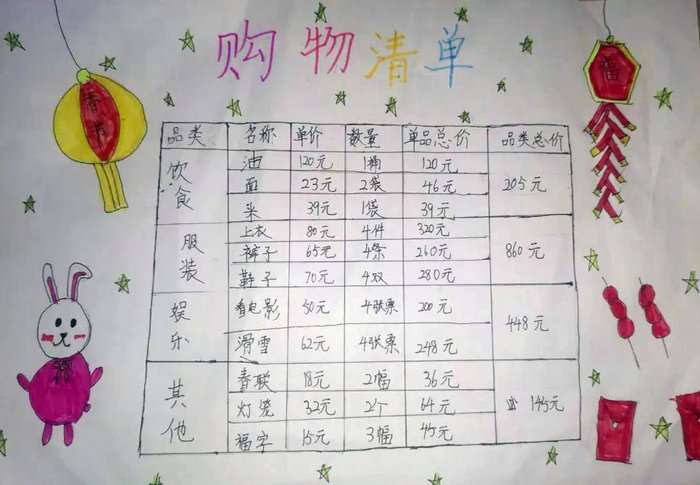 购物清单
春节
福
品类 名称 单价 数量 单品总价 品类总价
饮食 油 120元 1桶 120元 205元
面 23元 2袋 46元
米 39元 1袋 39元
服装 上衣 80元 4件 320元 860元
裤子 65元 4条 260元
鞋子 70元 4双 280元
娱乐 看电影 50元 4张票 200元 448元
滑雪 62元 4张票 248元
其他 春联 18元 2幅 36元 145元
灯笼 32元 2个 64元
福字 15元 3幅 45元